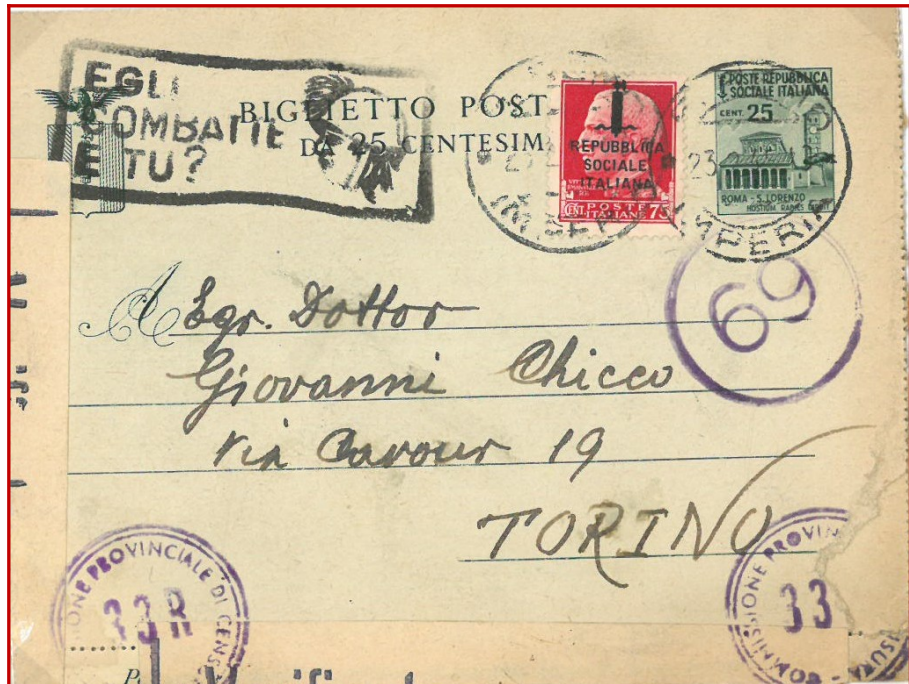 EGLI
COMBATTE
E TU?
BIGLIETTO POST
DA 25 CENTESIM
REPUBBLICA
SOCIALE
ITALIANA
CENT. POSTE ITALIANE 75
POSTE REPUBBLICA
SOCIALE ITALIANA
CENT. 25
ROMA - S. LORENZO
HOSTIUM RABIES DIRUIT
IMPERIA
69
A Egr. Dottor
Giovanni Chicco
Via Cavour 19
TORINO
IONE PROVINCIALE DI CENS
33R
COMMISSIONE PROVIN
SURA
33